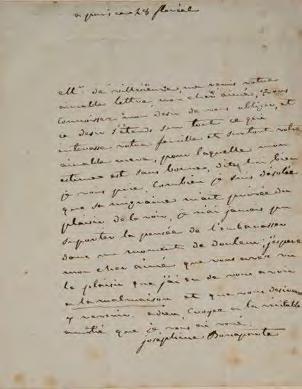 ce 28 floréal
Mme de a remis votre
aimable lettre, mon cher aimé, vous
connoissez mon desir de vous obliger, et
ce desir s'étend sur tout ce que
interesse votre famille et surtout votre
aimable mere, pour laquelle mon
estime est sans bornes, dites lui bien
je vous prie, combien je suis désolée
que sa migraine m'ait privée du
plaisir de la voir, je n'ai jamais pu
suporter la pensée de l'embarasser
dans un moment de douleur, j'espere
mon cher aimé que vous avez vu
le plaisir que j'ai eu de vous avoir
a la malmaison et que vous
y revenir. adieu, croyez a la véritable
amitié que je vous ai voué
Josephine Bonaparte